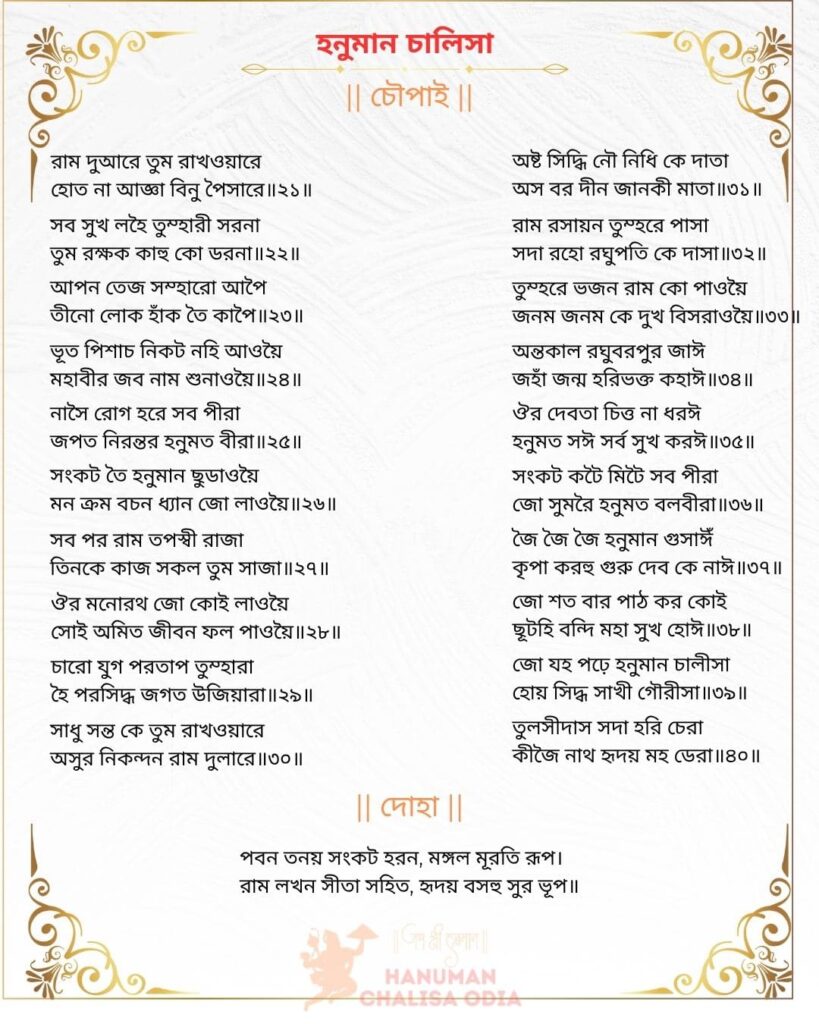 হনুমান চালিসা
|| চৌপাই ||
রাম দুআরে তুম রাখওয়ারে
হোত না আজ্ঞা বিনু পৈসারে॥২১॥
সব সুখ লহৈ তুম্হারী সরনা
তুম রক্ষক কাহু কো ডরনা॥২২॥
আপন তেজ সম্হারো আপৈ
তীনো লোক হাঁক তৈ কাপৈ॥২৩॥
ভূত পিশাচ নিকট নহি আওয়ৈ
মহাবীর জব নাম শুনাওয়ৈ॥২৪॥
নাসৈ রোগ হরে সব পীরা
জপত নিরন্তর হনুমত বীরা॥২৫॥
সংকট তৈ হনুমান ছুডাওয়ৈ
মন ক্রম বচন ধ্যান জো লাওয়ৈ॥২৬॥
সব পর রাম তপস্বী রাজা
তিনকে কাজ সকল তুম সাজা॥২৭॥
ঔর মনোরথ জো কোই লাওয়ৈ
সোই অমিত জীবন ফল পাওয়ৈ॥২৮॥
চারো যুগ পরতাপ তুম্হারা
হৈ পরসিদ্ধ জগত উজিয়ারা॥২৯॥
সাধু সন্ত কে তুম রাখওয়ারে
অসুর নিকন্দন রাম দুলারে॥৩০॥
অষ্ট সিদ্ধি নৌ নিধি কে দাতা
অস বর দীন জানকী মাতা॥৩১॥
রাম রসায়ন তুম্হরে পাসা
সদা রহো রঘুপতি কে দাসা॥৩২॥
তুম্হরে ভজন রাম কো পাওয়ৈ
জনম জনম কে দুখ বিসরাওয়ৈ॥৩৩॥
অন্তকাল রঘুবরপুর জাঈ
জহাঁ জন্ম হরিভক্ত কহাঈ॥৩৪॥
ঔর দেবতা চিত্ত না ধরঈ
হনুমত সঈ সর্ব সুখ করঈ॥৩৫॥
সংকট কটৈ মিটৈ সব পীরা
জো সুমরৈ হনুমত বলবীরা॥৩৬॥
জৈ জৈ জৈ হনুমান গুসাঈঁ
কৃপা করহু গুরু দেব কে নাঈ॥৩৭॥
জো শত বার পাঠ কর কোই
ছূটহি বন্দি মহা সুখ হোঈ॥৩৮॥
জো যহ পঢ়ে হনুমান চালীসা
হোয় সিদ্ধ সাখী গৌরীসা॥৩৯॥
তুলসীদাস সদা হরি চেরা
কীজৈ নাথ হৃদয় মহ ডেরা॥৪০॥
|| দোহা ||
পবন তনয় সংকট হরন, মঙ্গল মূরতি রূপ।
রাম লখন সীতা সহিত, হৃদয় বসহু সুর ভূপ॥
HANUMAN
CHALISA ODIA